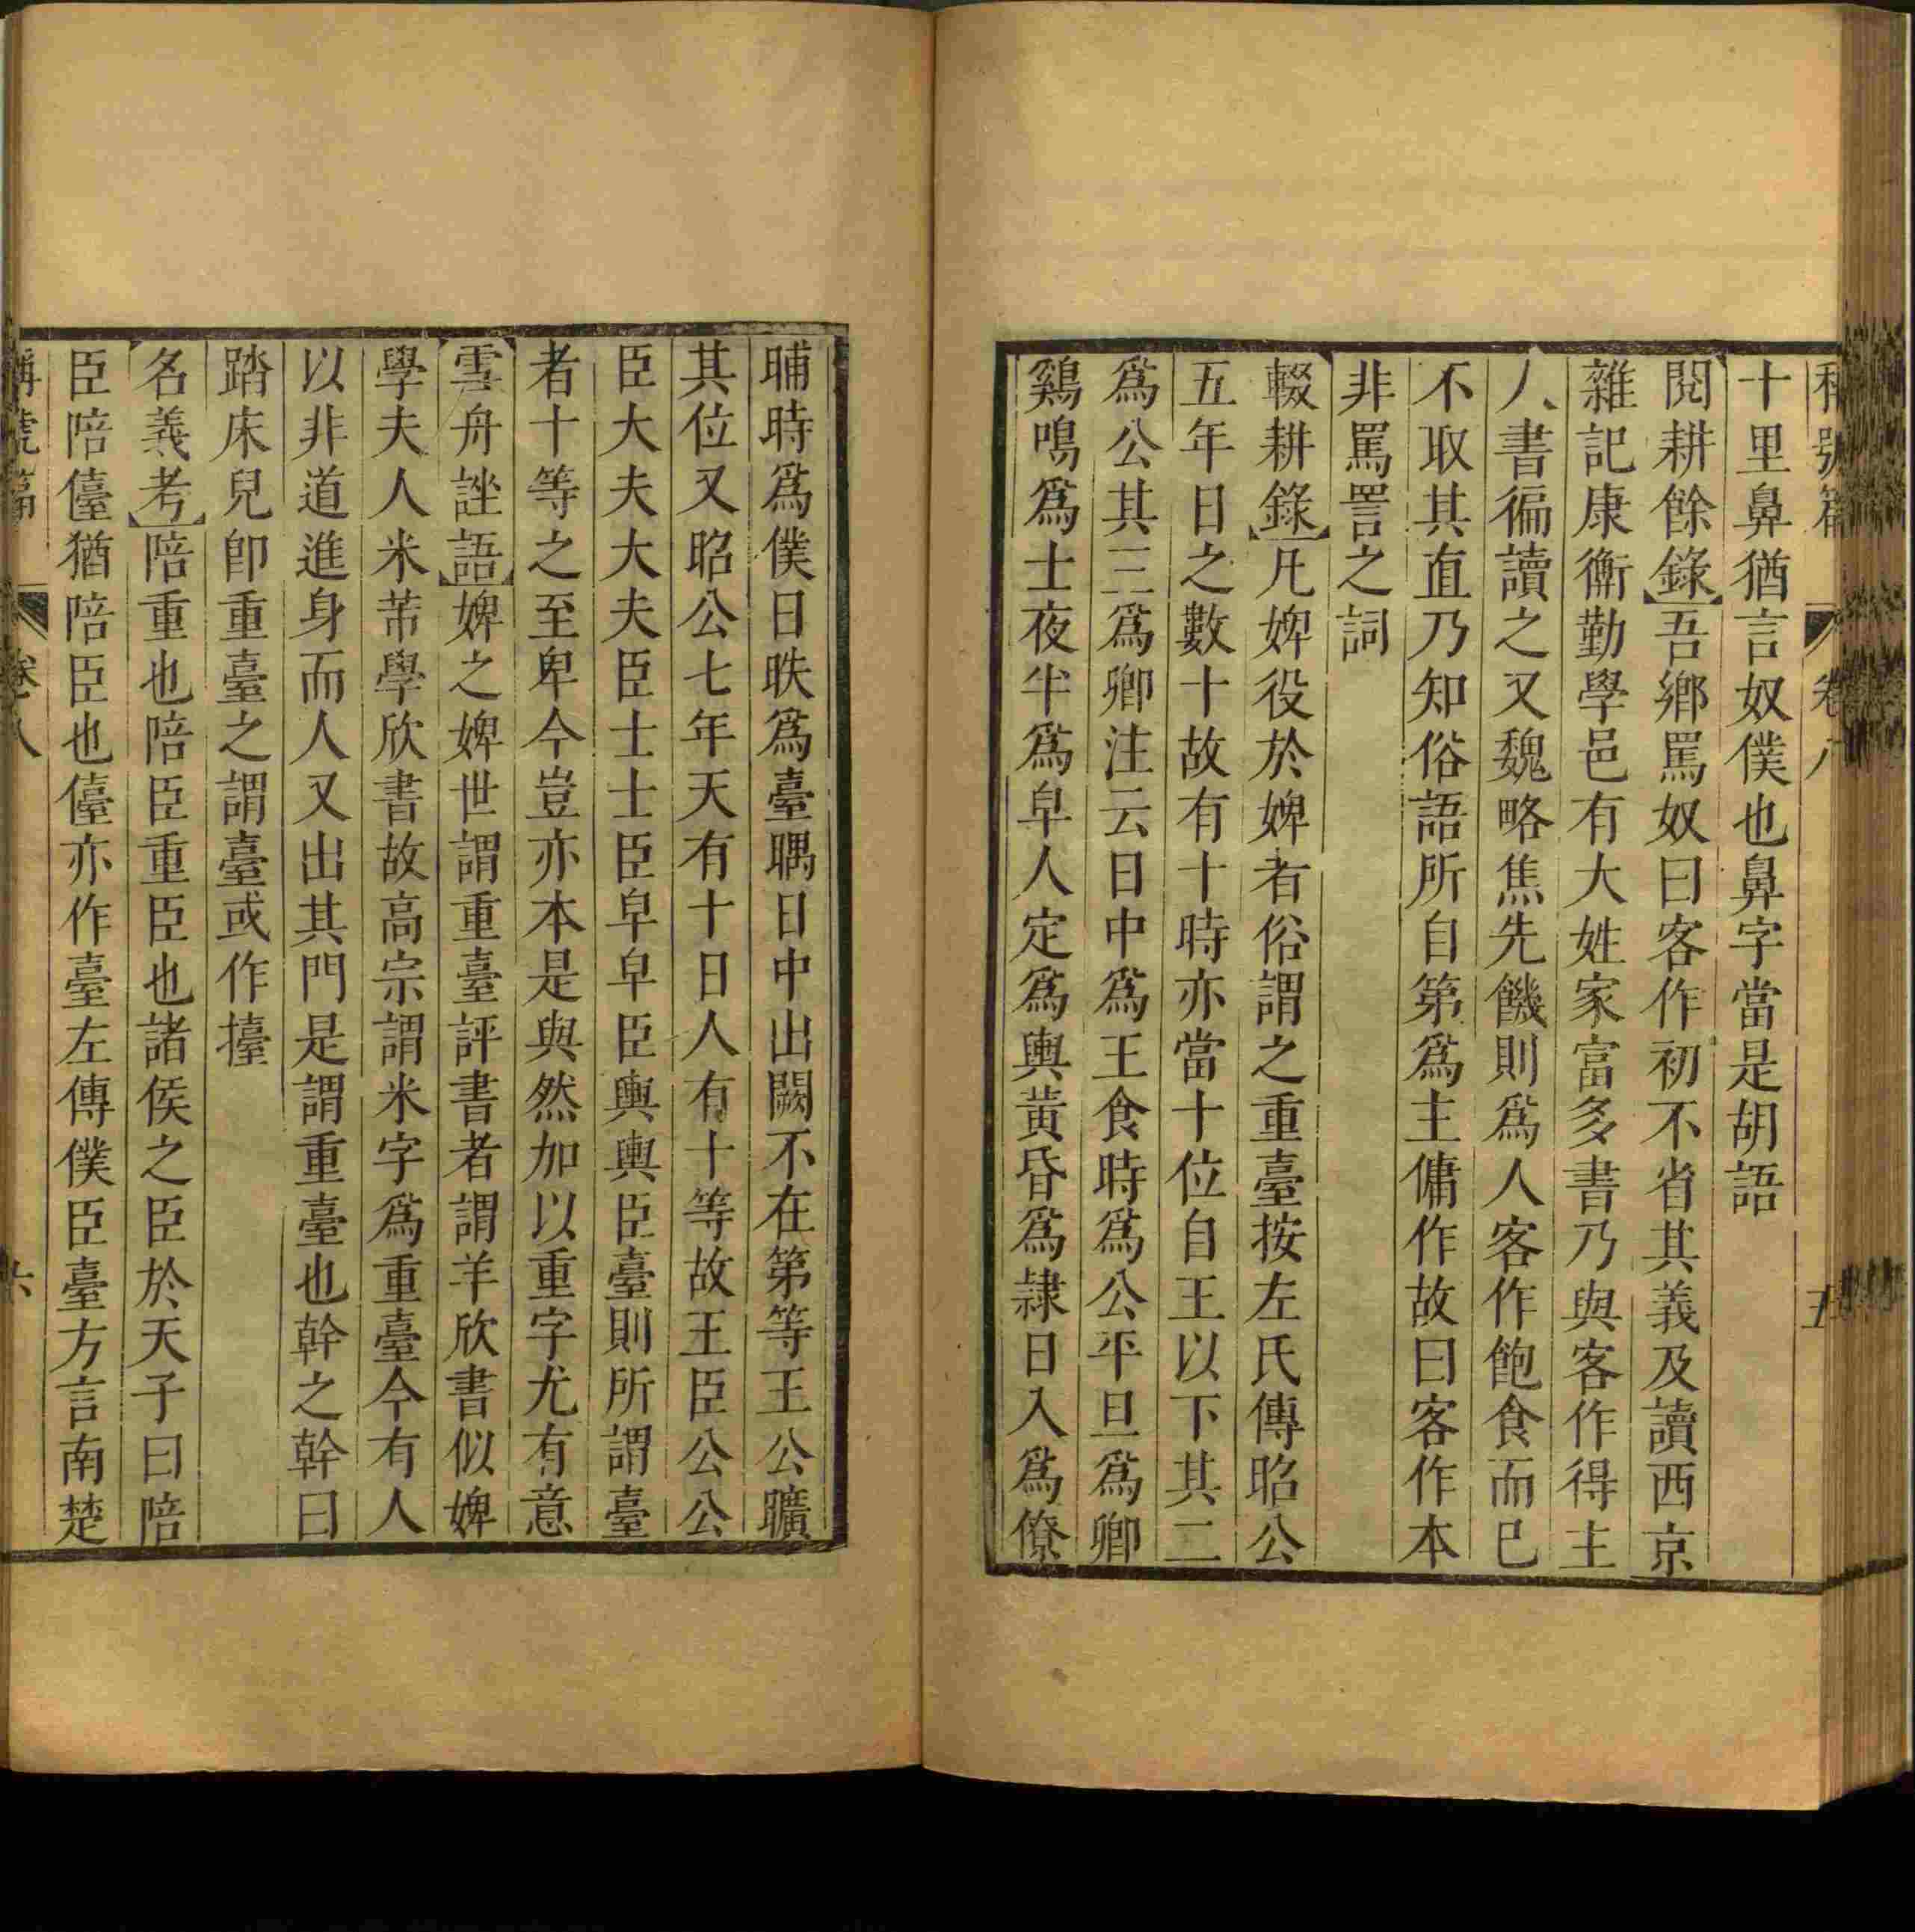 稱號篇 卷八 五
十里鼻猶言奴僕也鼻字當是胡語
閱耕餘錄吾鄉罵奴曰客作初不省其義及讀西京
雜記康衡勤學邑有大姓家富多書乃與客作得主
人書徧讀之又魏略焦先饑則爲人客作飽食而已
不取其直乃知俗語所自第爲主傭作故曰客作本
非罵詈之詞
輟耕錄凡婢役於婢者俗謂之重臺按左氏傳昭公
五年日之數十故有十時亦當十位自王以下其二
爲公其三爲卿注云日中爲王食時爲公平旦爲卿
鷄鳴爲士夜半爲皁人定爲輿黃昏爲隷日入爲僚
晡時爲僕日昳爲臺隅日中出闕不在第等王公曠
其位又昭公七年天有十日人有十等故王臣公公
臣大夫大夫臣士士臣皁皁臣輿輿臣臺則所謂臺
者十等之至卑今豈亦本是與然加以重字尤有意
雲舟詓語婢之婢世謂重臺評書者謂羊欣書似婢
學夫人米芾學欣書故高宗謂米字爲重臺今有人
以非道進身而人又出其門是謂重臺也幹之幹曰
踏床兒卽重臺之謂臺或作擡
名義考陪重也陪臣重臣也諸侯之臣於天子曰陪
臣陪儓猶陪臣也儓亦作臺左傳僕臣臺方言南楚
稱號篇 卷八 六